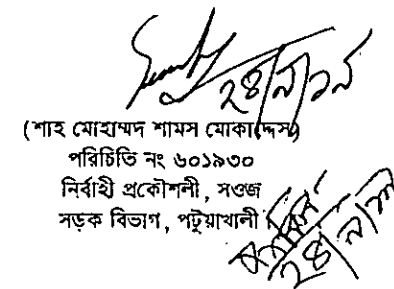 ২৪/৭/১৭
(শাহ মোহাম্মদ শামস মোকাদ্দেস)
পরিচিতি নং ৬০১৯৩০
নির্বাহী প্রকৌশলী, সওজ
সড়ক বিভাগ, পটুয়াখালী।